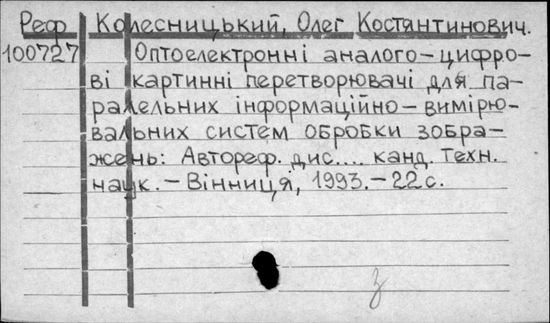 Реф Колесницький, Олег Костянтинович.
100727 Оптоелектронні аналого-цифро-
ві картинні перетворювачі для па-
ралельних інформаційно-вимірю-
вальних систем обробки зобра-
жень: Автореф. дис.... канд. техн.
наук. - Вінниця, 1993. - 22 с.